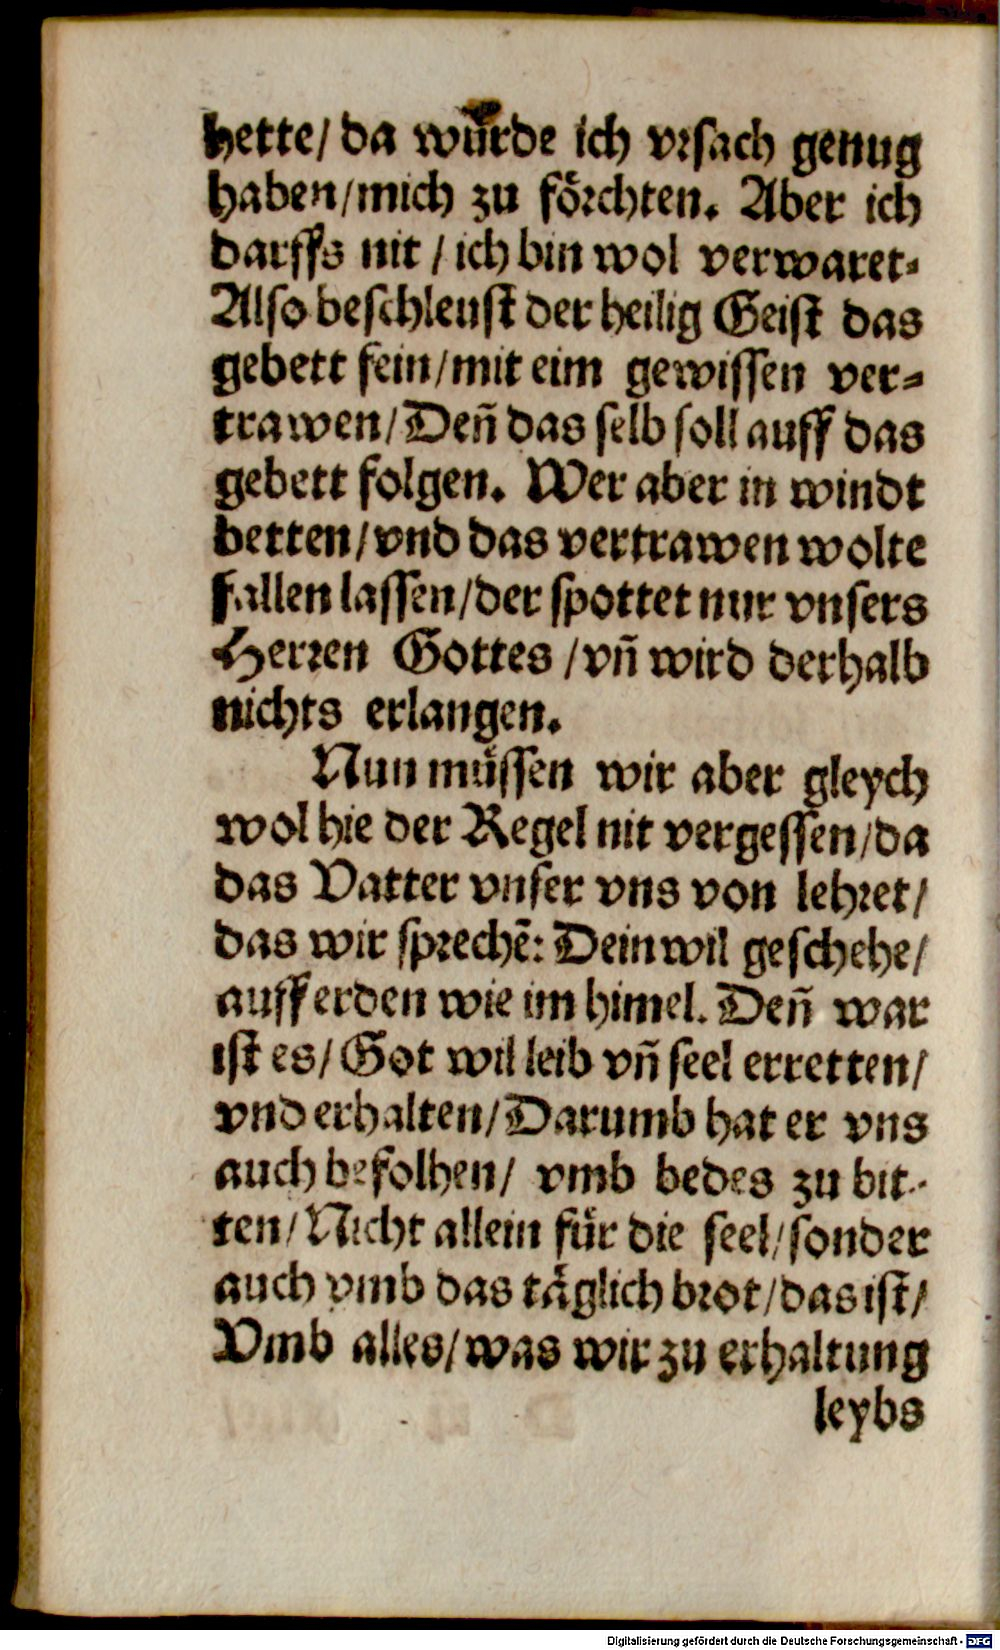 hette/ da wuͤrde ich vrsach genug
haben/mich zu foͤrchten. Aber ich
darffs nit / ich bin wol verwaret-
Also beschleust der heilig Geist das
gebett fein/mit eim gewissen ver-
trawen/Deñ das selb soll auff das
gebett folgen. Wer aber in windt
betten/vnd das vertrawen wolte
fallen lassen/der spottet nur vnsers
Herren Gottes /vñ wird derhalb
nichts erlangen.
Nun muͤssen wir aber gleych
wol hie der Regel nit vergessen/da
das Vatter vnser vns von lehret/
das wir sprechẽ: Dein wil geschehe/
auff erden wie im himel. Deñ war
ist es/ Got wil leib vñ seel erretten/
vnd erhalten/Darumb hat er vns
auch befolhen/ vmb bedes zu bit-
ten/Nicht allein fuͤr die seel/sonder
auch vmb das taͤglich brot/das ist/
Vmb alles/was wir zu erhaltung
leybs
Digitalisierung gefördert durch die Deutsche Forschungsgemeinschaft - DFG